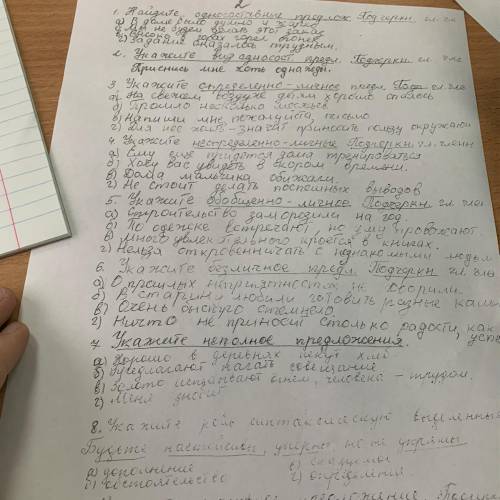 2
1. Найдите односоставные предлож. Подчеркн. гл. чл
а) В доме было душно и жарко
б) Мы не будем делать этот заказ
в) Высоко в горах горел огонек
г) Задание оказалось трудным.
2. Укажите вид односост. предл. Подчеркн. гл. чле
Приснись мне хоть однажды.
3. Укажите определенно-личное предл. гл. чле
а) На свежем воздухе детям хорошо спалось
б) Прошло несколько месяцев
в) Напиши мне, пожалуйста, письмо
г) Для нее жить - значит приносить пользу окружаю
4. Укажите неопределенно-личные Подчеркн гл. член
а) Ему еще придется дома тренироваться
б) Хочу вас увидеть в скором времени.
в) Дома мальчика обижали
г) Не стоит делать поспешных выводов
5. Укажите обобщенно-личное Подчеркн гл. член
а) Строительство заморозили на год.
б) По одежке встречают, по уму провожают.
в) Много увлекательного кроется в книгах.
г) Нельзя откровенничать с незнакомыми людьм
6. Укажите безличное предл. Подчеркн гл. чле
а) О прошлых неприятностях не говорили.
б) В старину любили готовить разные каши
в) Очень быстро стемнело
г) Ничто не приносит столько радости, как успе
7. Укажите неполное предложения.
а) Хорошо в деревнях пекут хлеб
б) Предлагают начать совещание
в) Золото испытывают огнем, человека - трудом.
г) Меня знобит
8. Укажите роль синтаксическую выделенных
Будьте настойчивы, упорны но не упрямы
а) дополнение
в) сказуемое
б) обстоятельство
г) определение